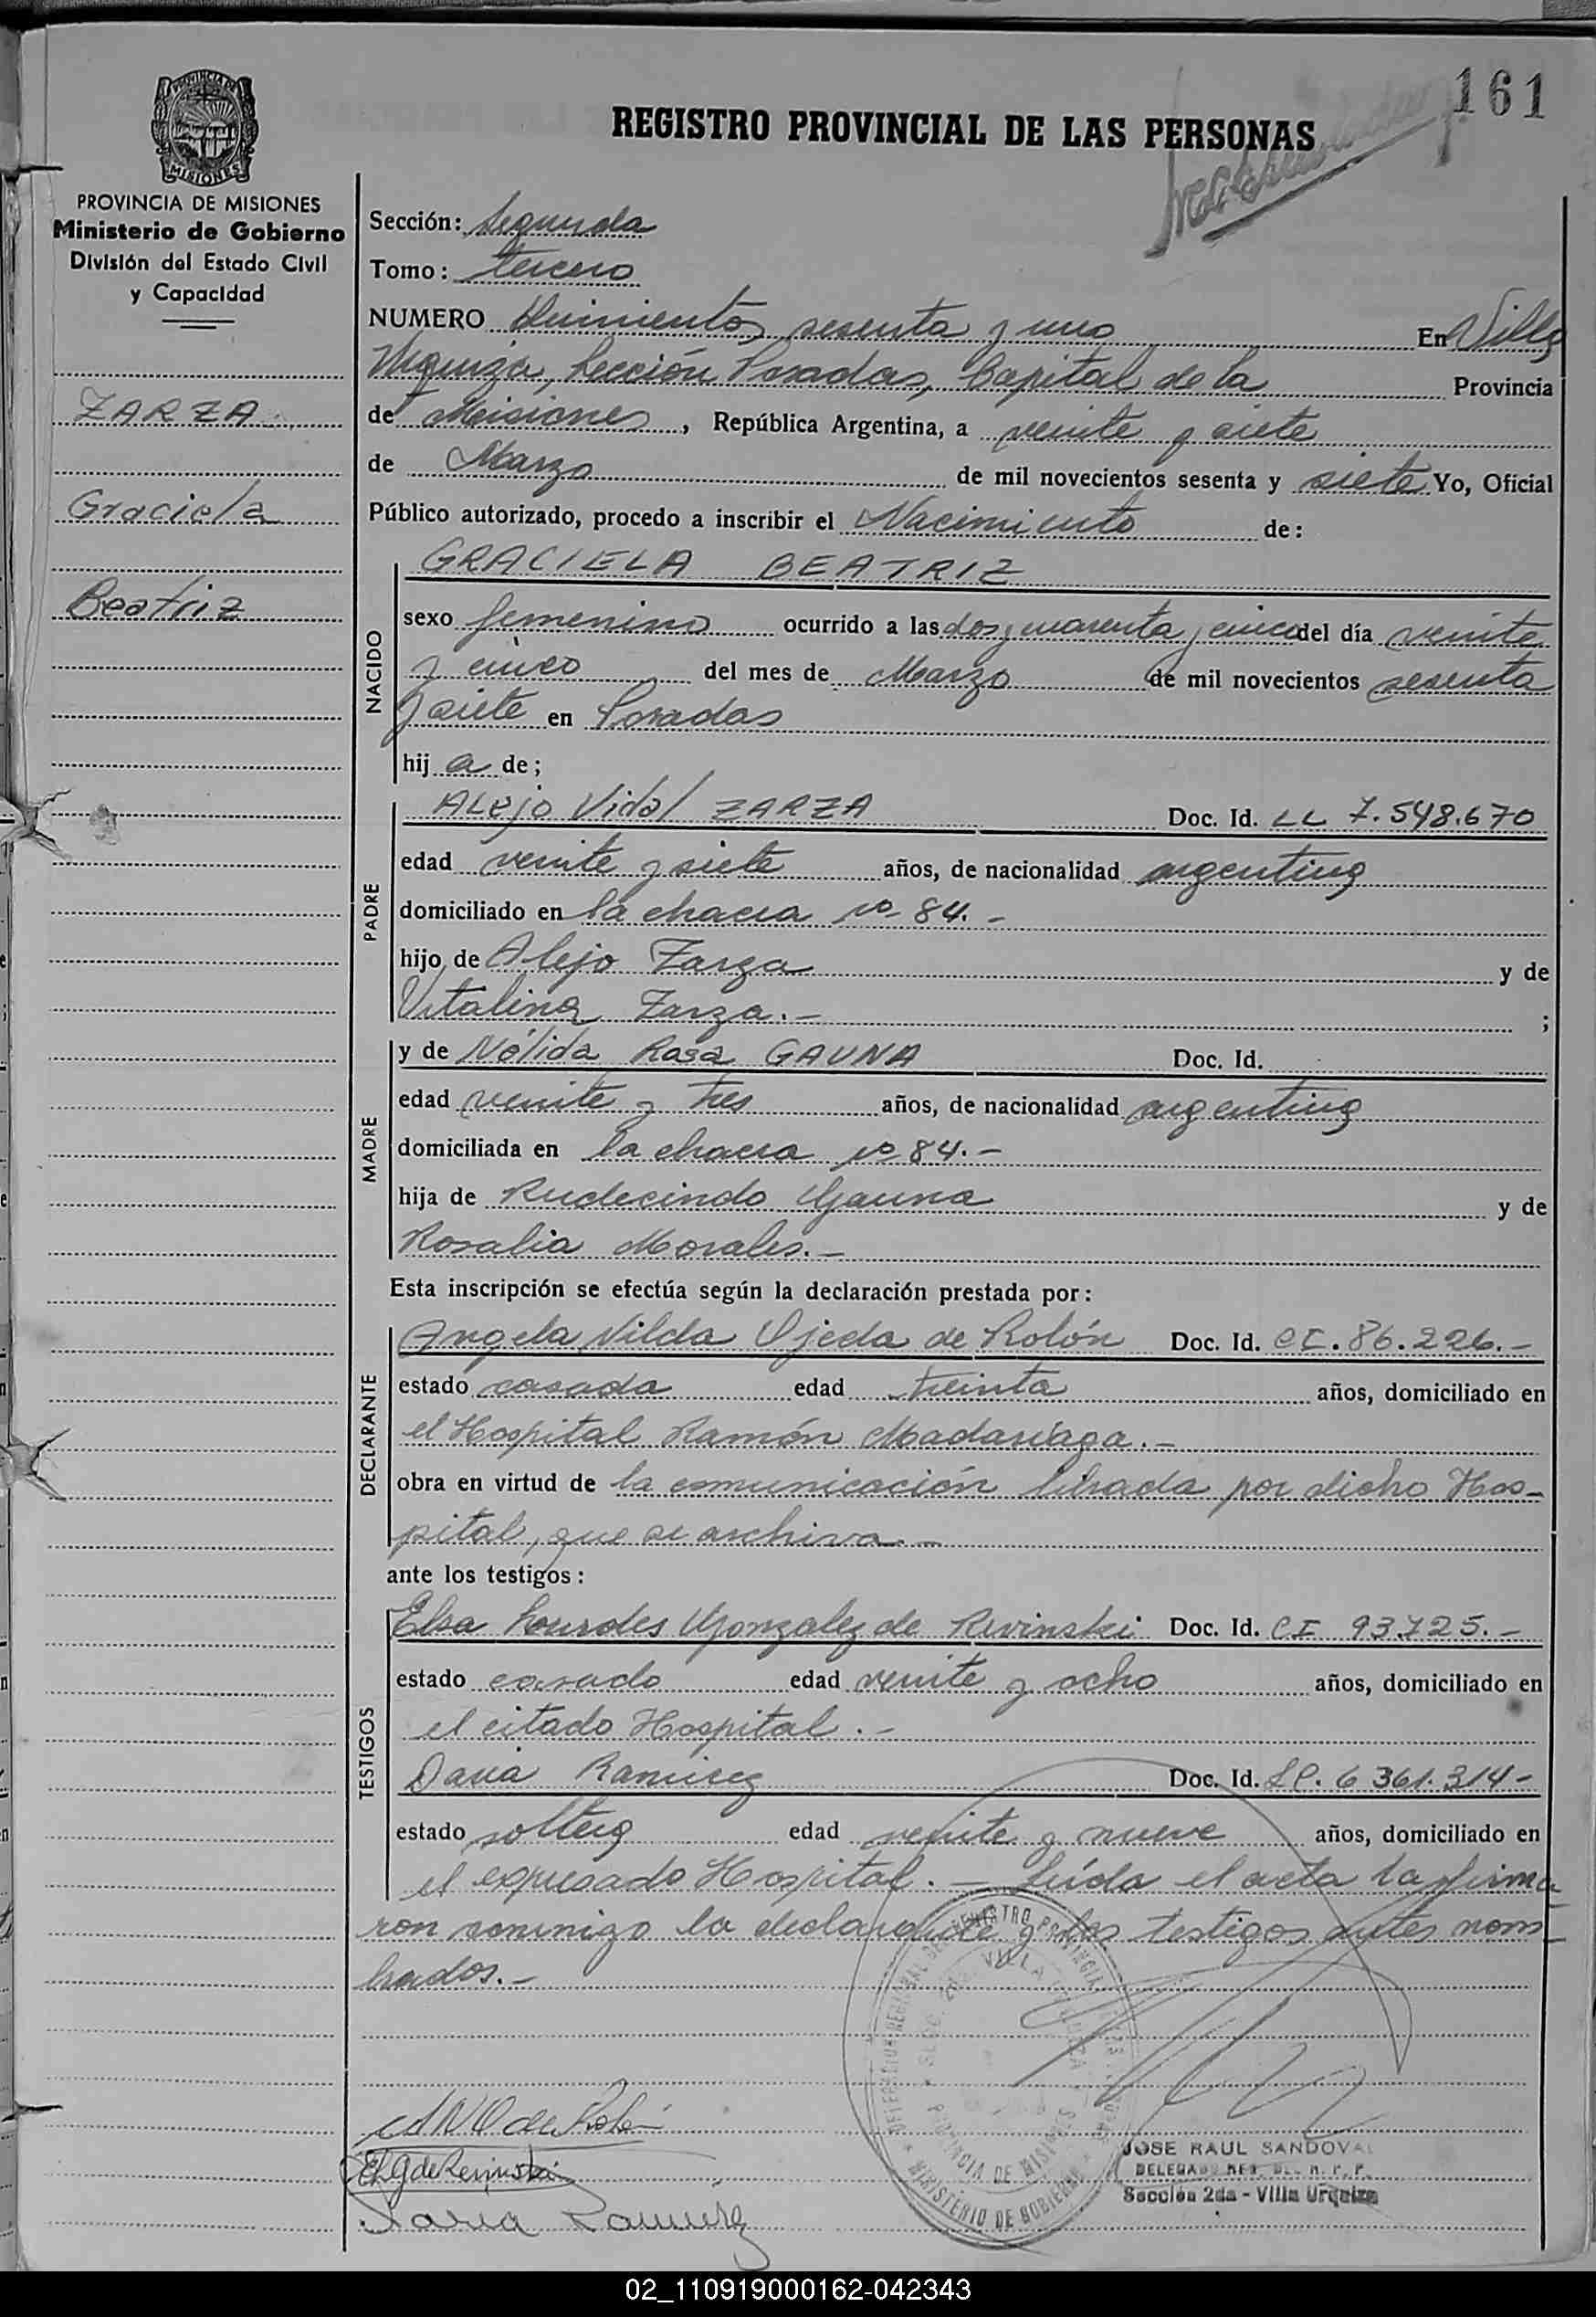 161
REGISTRO PROVINCIAL DE LAS PERSONAS
PROVINCIA DE MISIONES
Ministerio de Gobierno
División del Estado Civil
y Capacidad
ZARZA
Graciela
Beatriz
Sección: Segunda
Tomo: tercero
NUMERO Quinientos sesenta y uno En Villa
Urquiza, Sección Posadas, Capital de la Provincia
de Misiones, República Argentina, a veinte y siete
de Marzo de mil novecientos sesenta y siete Yo, Oficial
Público autorizado, procedo a inscribir el Nacimiento de:
NACIDO
GRACIELA BEATRIZ
sexo femenino ocurrido a las dos y cuarenta y cinco del día veinte
y cinco del mes de Marzo de mil novecientos sesenta
y siete en Posadas
hij a de;
PADRE
Alejo Vidal ZARZA Doc. Id. LL 7.548.670
edad veinte y siete años, de nacionalidad argentina
domiciliado en la chacra nº 84.-
hijo de Alejo Zarza y de
Vitalina Zarza.- ;
MADRE
y de Nélida Rosa GAUNA Doc. Id.
edad veinte y tres años, de nacionalidad argentina
domiciliada en la chacra nº 84.-
hija de Rudecindo Gauna y de
Rosalia Morales.-
Esta inscripción se efectúa según la declaración prestada por:
DECLARANTE
Angela Nilda Ojeda de Rolón Doc. Id. CI. 86.226.-
estado casada edad treinta años, domiciliado en
el Hospital Ramón Madariaga.-
obra en virtud de la comunicación librada por dicho Hos-
pital, que se archiva.-
ante los testigos:
TESTIGOS
Elsa Lourdes Gonzalez de Revinski Doc. Id. CI 93.725.-
estado casado edad veinte y ocho años, domiciliado en
el citado Hospital.-
Daria Ramirez Doc. Id. LC. 6 361.314-
estado soltera edad veinte y nueve años, domiciliado en
el expresado Hospital.- Leída el acta la firma
ron conmigo la declarante y los testigos antes nom-
brados.-
ANO de Rolón
El G de Revinski
Daria Ramirez
REGISTRO PROVINCIAL
VILLA URQUIZA
PROVINCIA DE MISIONES
MINISTERIO DE GOBIERNO
JOSE RAUL SANDOVAL
DELEGADO REG. DEL R. P. P.
Sección 2da - Villa Urquiza
02_110919000162-042343